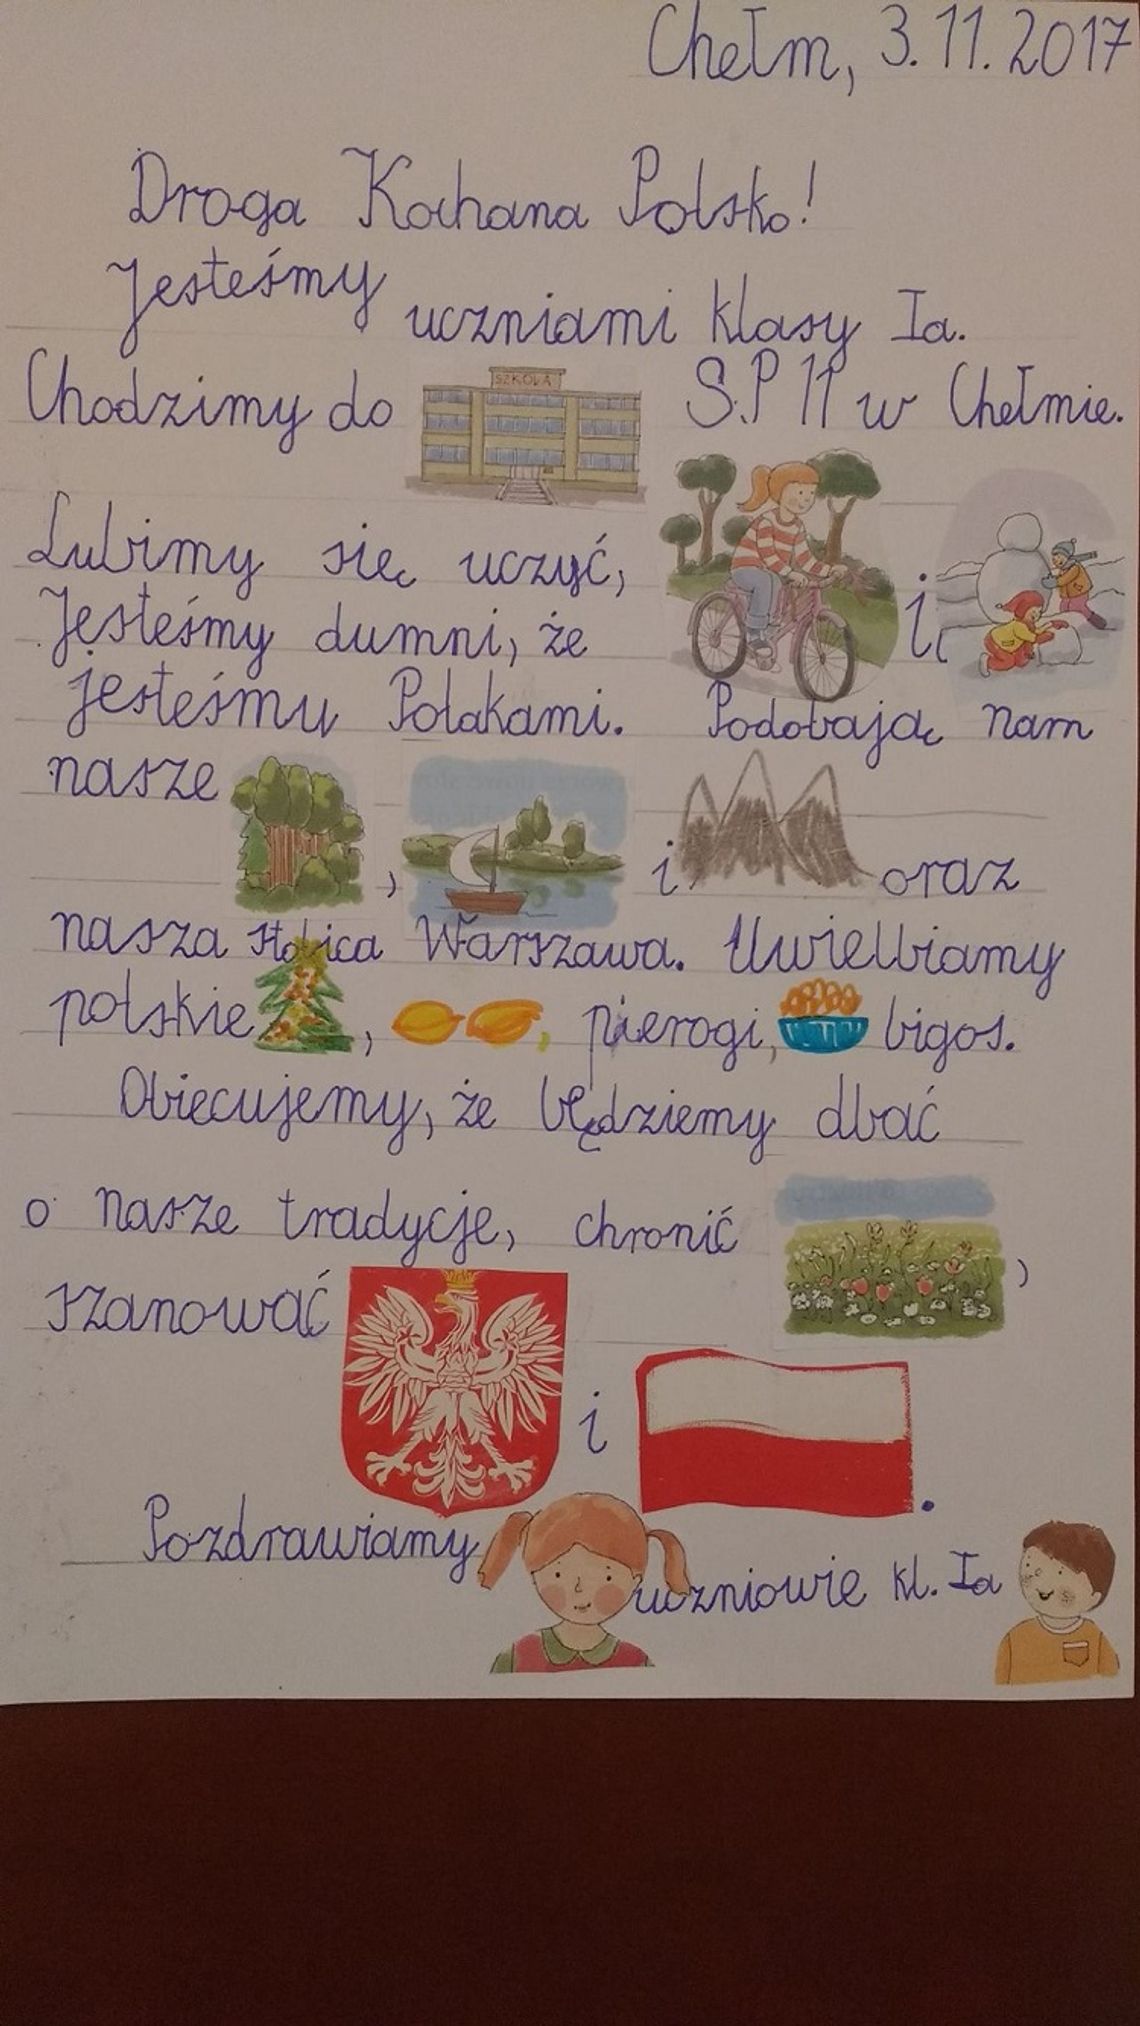 Chełm, 3.11.2017
Droga Kochana Polsko!
Jesteśmy uczniami klasy Ia.
Chodzimy do SZKOŁA S.P 11 w Chełmie.
Lubimy się uczyć, i
Jesteśmy dumni, że
jesteśmy Polakami. Podobają nam
nasze , i oraz
nasza stolica Warszawa. Uwielbiamy
polskie , , pierogi, bigos.
Obiecujemy, że będziemy dbać
o nasze tradycje, chronić ,
szanować i .
Pozdrawiamy uczniowie kl. Ia